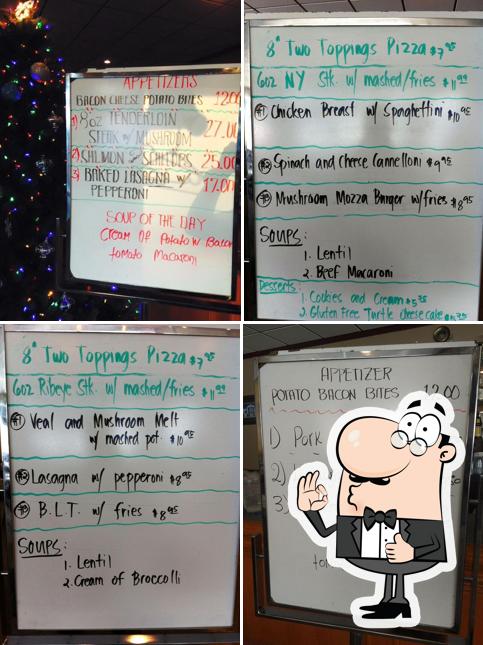 APPETIZERS
BACON CHEESE POTATO BITES 12.00
1) 8oz TENDERLOIN
STEAK w/ MUSHROOM 27.00
2) SALMON & SCALLOPS 25.00
3) BAKED LASAGNA w/
PEPPERONI 17.00
SOUP OF THE DAY
Cream OF Potato w Bacon
tomato Macaroni
8" Two Toppings Pizza $7.95
6oz NY Stk. w/ mashed/fries $11.99
#1 Chicken Breast w/ Spaghettini $10.95
#2 Spinach and Cheese Cannelloni $9.95
#3 Mushroom Mozza Burger w/fries $8.95
Soups:
1. Lentil
2. Beef Macaroni
Desserts:
1. Cookies and Cream $5.75
2. Gluten Free Turtle cheesecake
8" Two Toppings Pizza $7.95
6oz Ribeye Stk. w/ mashed/fries $11.99
#1 Veal and Mushroom Melt
w/ mashed pot. $10.95
#2 Lasagna w/ pepperoni $8.95
#3 B.L.T. w/ fries $8.95
Soups:
1. Lentil
2. Cream of Broccolli
APPETIZER
POTATO BACON BITES 12.00
1) Pork
2)
3)